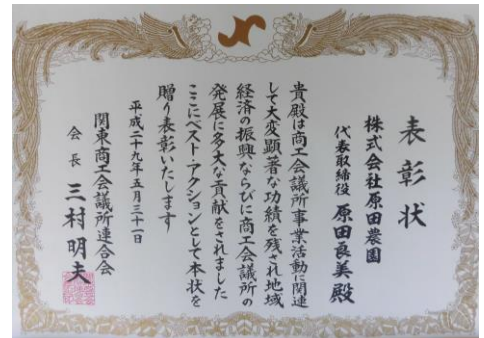 表彰状
株式会社原田農園
代表取締役 原田良美殿
貴殿は商工会議所事業活動に関連
して大変顕著な功績を残され地域
経済の振興ならびに商工会議所の
発展に多大な貢献をされました
ここにベスト・アクションとして本状を
贈り表彰いたします
平成二十九年五月三十一日
関東商工会議所連合会
会長 三村明夫